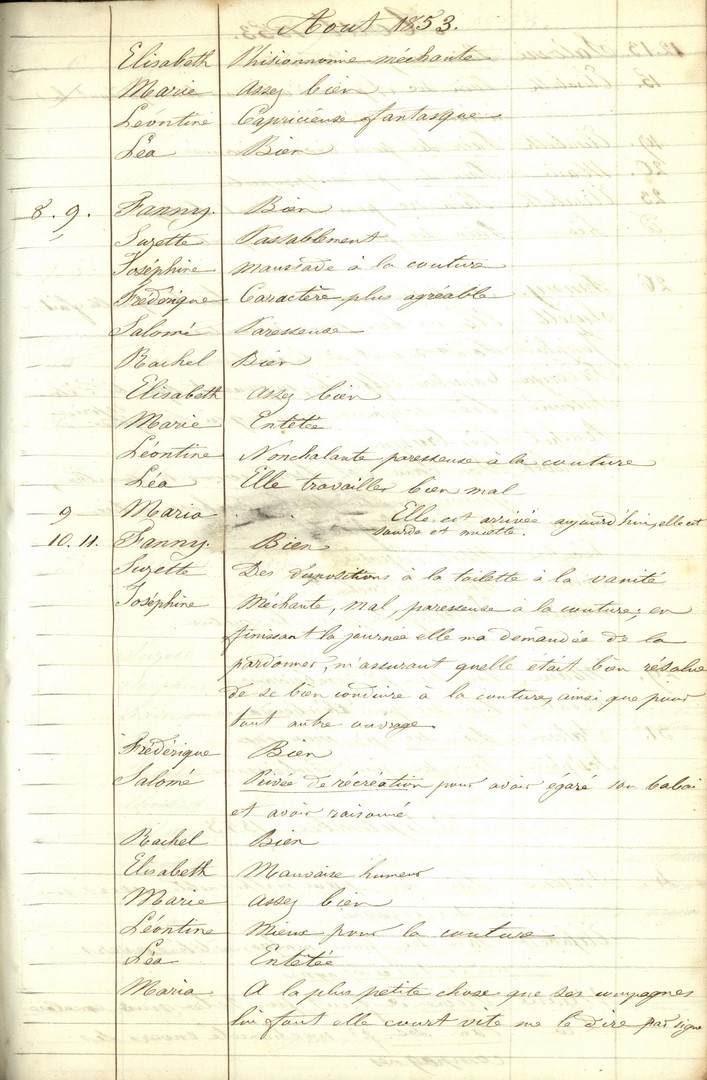 Aout 1853.
Elisabeth Phisionnomie méchante
Marie assez bien
Léontine Capricieuse fantasque
Léa Bien
8. 9. Fanny. Bien
Suzette Passablement
Joséphine maussade à la couture
Frédérique Caractère plus agréable
Salomé Paresseuse
Rachel Bien
Elisabeth assez bien
Marie Entétée
Léontine Nonchalante paresseuse à la couture
Léa Elle travailler bien mal
9 Maria Elle est arrivée aujourd'hui, elle est
sourde et muette.
10. 11. Fanny. Bien
Suzette Des dispositions à la toilette à la vanité
Joséphine Méchante, mal, paresseuse à la couture; en
finissant la journée elle m'a demandée de la
pardonner, m'assurant quelle était bien résolue
de se bien conduire à la couture, ainsi que pour
tout autre ouvrage.
Frédérique Bien
Salomé Privée de récréation pour avoir égaré son
et avoir raisonné
Rachel Bien
Elisabeth Mauvaise humeur
Marie assez bien
Léontine Mieux pour la couture
Léa Entétée
Maria A la plus petite chose que ses compagnes
lui font elle court vite me le dire par signe